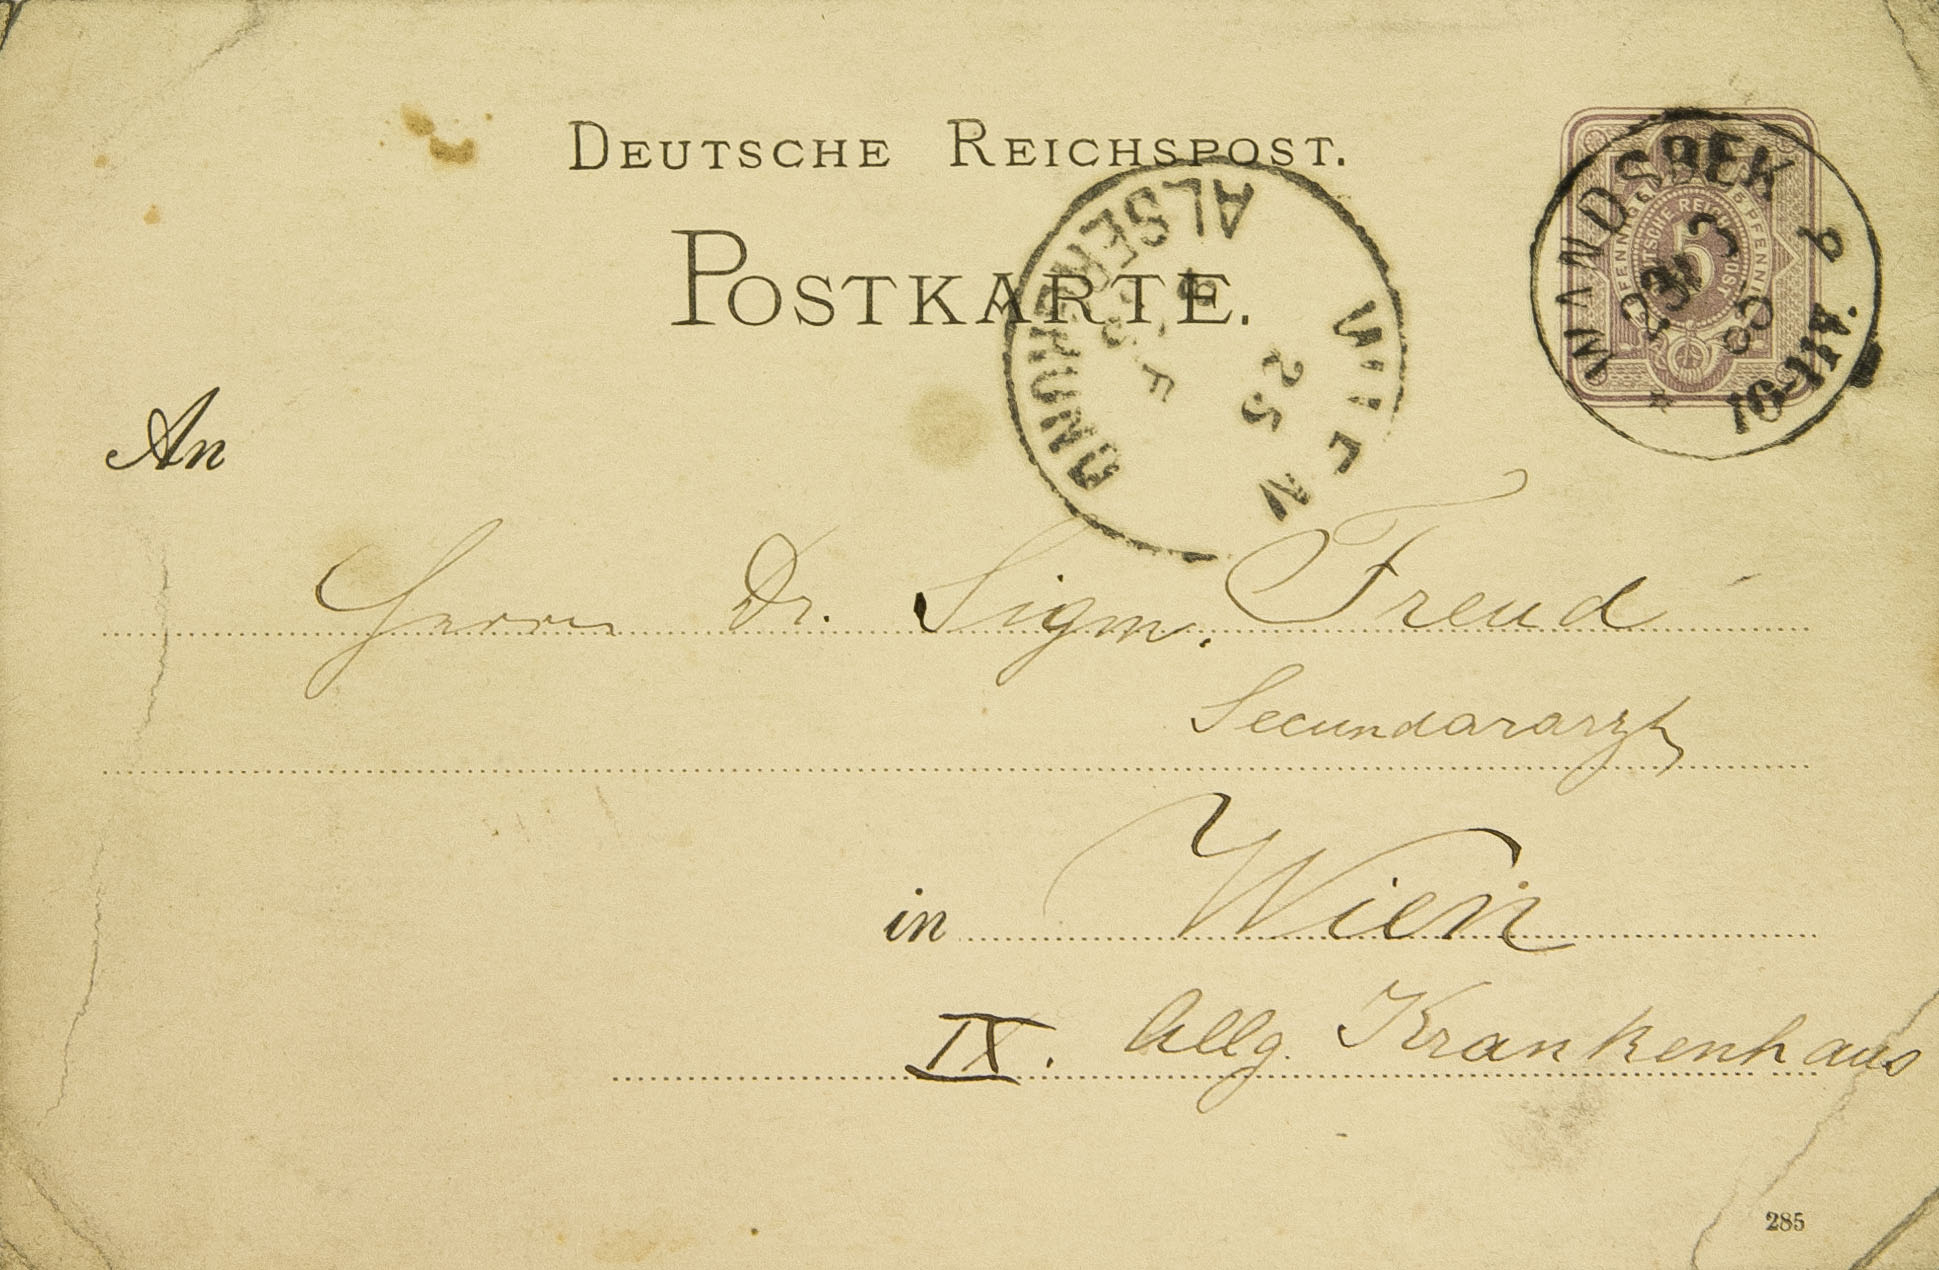 DEUTSCHE REICHSPOST.
POSTKARTE.
WANDSBEK
23 3
83
5 PFENNIG
DEUTSCHE REICHSPOST
5
WIEN
ALSERGRUND
25
An
Herrn Dr. Sigm. Freud
Secundararzt
in Wien
IX. Allg. Krankenhaus
285